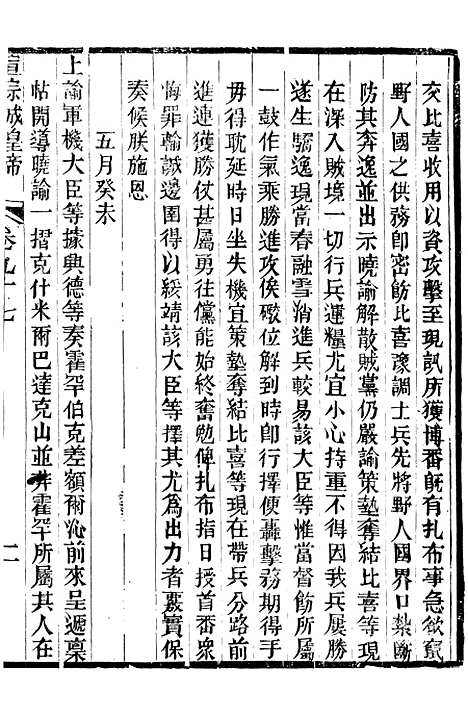 交比喜收用以資攻擊至現訊所獲博番旣有扎布事急欲竄
野人國之供務卽密飭比喜豫調土兵先將野人國界口紮斷
防其奔逸並出示曉諭解散賊黨仍嚴諭策墊奪結比喜等現
在深入賊境一切行兵運糧尤宜小心持重不得因我兵屢勝
遂生驕逸現當春融雪消進兵較易該大臣等惟當督飭所屬
一鼓作氣乘勝進攻俟礮位解到時卽行擇便轟擊務期得手
毋得耽延時日坐失機宜策墊奪結比喜等現在帶兵分路前
進連獲勝仗甚屬勇往儻能始終奮勉俾扎布指日授首番衆
悔罪輸誠邊圉得以綏靖該大臣等擇其尤爲出力者覈實保
奏候朕施恩
五月癸未
上諭軍機大臣等據興德等奏霍罕伯克差額爾沁前來呈遞稟
帖開導曉諭一摺克什米爾巴達克山並非霍罕所屬其人在
宣宗成皇帝 卷九十七 二